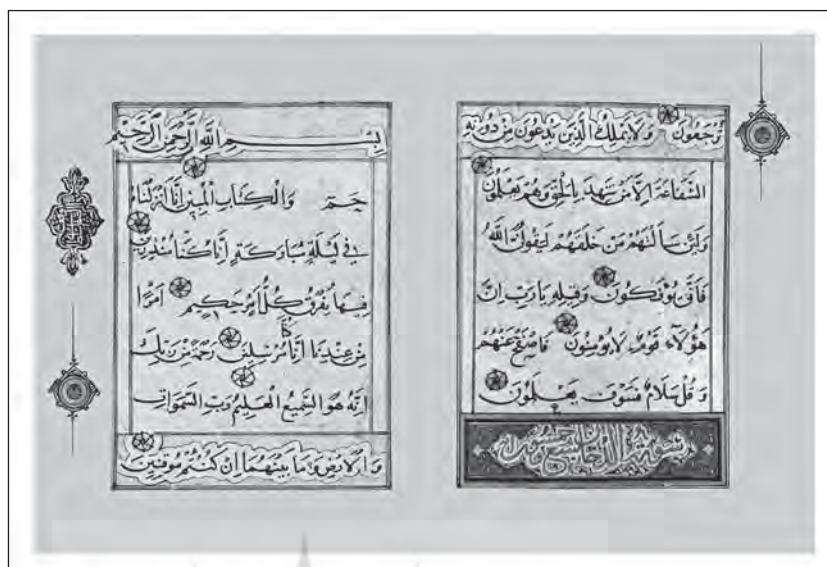 تُرْجَعُونَ وَلَا يَمْلِكُ الَّذِينَ يَدْعُونَ مِنْ دُونِهِ
الشَّفَاعَةَ اِلَّا مَنْ شَهِدَ بِالْحَقِّ وَهُمْ يَعْلَمُونَ
وَلَئِنْ سَاَلْتَهُمْ مَنْ خَلَقَهُمْ لَيَقُولُنَّ اللَّهُ
فَاَنَّى يُؤْفَكُونَ وَقِيلِهِ يَا رَبِّ اِنَّ
هَؤُلَاءِ قَوْمٌ لَا يُؤْمِنُونَ فَاصْفَحْ عَنْهُمْ
وَقُلْ سَلَامٌ فَسَوْفَ يَعْلَمُونَ
سورة الدخان تسع وخمسون
بِسْمِ اللَّهِ الرَّحْمَنِ الرَّحِيمِ
حم وَالْكِتَابِ الْمُبِينِ اِنَّا اَنْزَلْنَاهُ
فِي لَيْلَةٍ مُبَارَكَةٍ اِنَّا كُنَّا مُنْذِرِينَ
فِيهَا يُفْرَقُ كُلُّ اَمْرٍ حَكِيمٍ اَمْرًا
مِنْ عِنْدِنَا اِنَّا كُنَّا مُرْسِلِينَ رَحْمَةً مِنْ رَبِّكَ
اِنَّهُ هُوَ السَّمِيعُ الْعَلِيمُ رَبِّ السَّمَوَاتِ
وَالْاَرْضِ وَمَا بَيْنَهُمَا اِنْ كُنْتُمْ مُوقِنِينَ